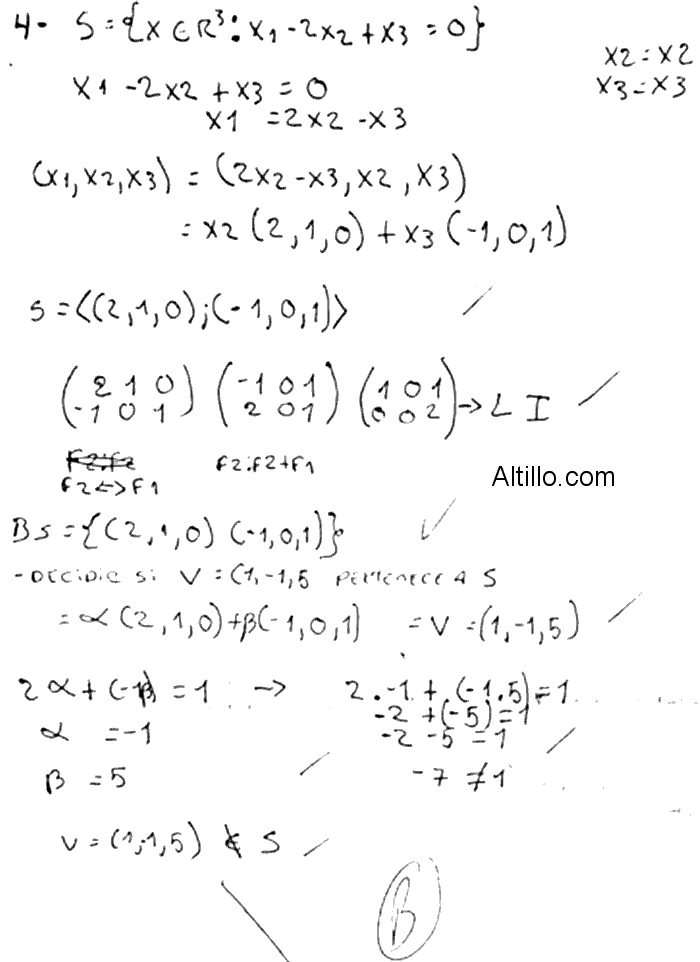 4- S = {X ∈ R³: X1 - 2X2 + X3 = 0}
X2 = X2
X3 = X3
X1 - 2X2 + X3 = 0
X1 = 2X2 - X3
(X1, X2, X3) = (2X2 - X3, X2, X3)
= X2 (2, 1, 0) + X3 (-1, 0, 1)
S = <(2, 1, 0); (-1, 0, 1)>
(2 1 0) (-1 0 1) (1 0 1)
(-1 0 1) (2 0 1) (0 0 2) → L I
F2:F2 F2:F2+F1
F2 <-> F1
Altillo.com
Bs = {(2, 1, 0) (-1, 0, 1)}
- Decidir si V = (1, -1, 5 pertenece a S
= α (2, 1, 0) + β (-1, 0, 1) = V = (1, -1, 5)
2 α + (-1β) = 1 → 2 . -1 + (-1.5) = 1
-2 + (-5) = 1
α = -1 -2 - 5 = 1
β = 5 -7 ≠ 1
V = (1, -1, 5) ∉ S
B